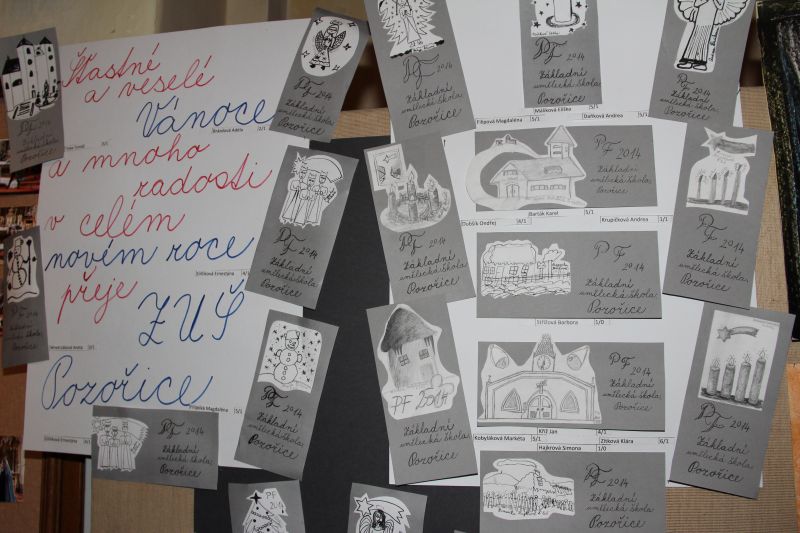 Šťastné
a veselé
Vánoce
a mnoho
radosti
v celém
novém roce
přeje
ZUŠ
Pozořice
PF 2014
Základní
umělecká škola
Pozořice
PF 2014
Základní
umělecká škola
Pozořice
PF 2014
Základní
umělecká škola
Pozořice
PF 2014
Základní
umělecká škola
Pozořice
PF 2014
Základní
umělecká škola
Pozořice
PF 2014
Základní
umělecká škola
Pozořice
PF 2014
Základní
umělecká škola
Pozořice
PF 2014
Základní
umělecká škola
Pozořice
Filipová Magdaléna 5/1
Málíková Eliška 5/1
Daňková Andrea 5/1
PF 2014
Základní
umělecká škola
Pozořice
PF 2014
Základní
umělecká škola
Pozořice
PF 2014
Základní
umělecká škola
Pozořice
Dobšík Ondřej
Barták Karel 5/1
Krupičková Andrea 1/1
PF 2014
Základní
umělecká škola
Pozořice
Střížová Barbora 1/0
PF 2014
PF 2014
Základní
umělecká škola
Pozořice
PF 2014
Základní
umělecká škola
Pozořice
PF 2014
Základní
umělecká škola
Pozořice
Kobyláková Markéta 5/1
Kříž Jan 4/1
Zítková Klára 6/1
Hajkrová Simona 1/0
PF 2014
Základní
umělecká škola
Pozořice
PF